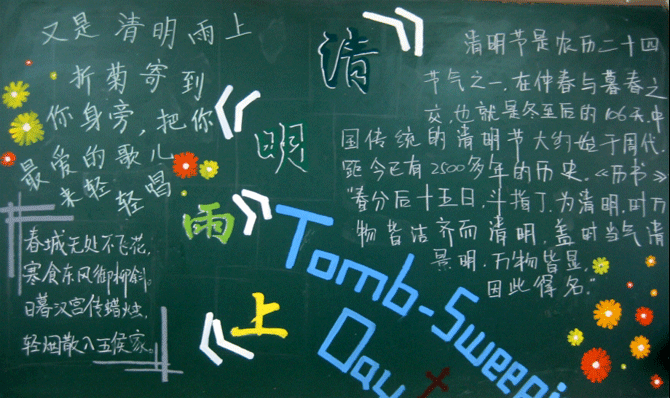 又是清明雨上
折菊寄到
你身旁,把你
最爱的歌儿
来轻轻唱
春城无处不飞花,
寒食东风御柳斜。
日暮汉宫传蜡烛,
轻烟散入五侯家。
清
明
雨
上
清明节是农历二十四
节气之一,在仲春与暮春之
交,也就是冬至后的106天,中
国传统的清明节大约始于周代,
距今已有2500多年的历史,《历书》
"春分后十五日,斗指丁,为清明,时万
物皆洁齐而清明,盖时当气清
景明,万物皆显,
因此得名。"
Tomb-Sweepi
Day